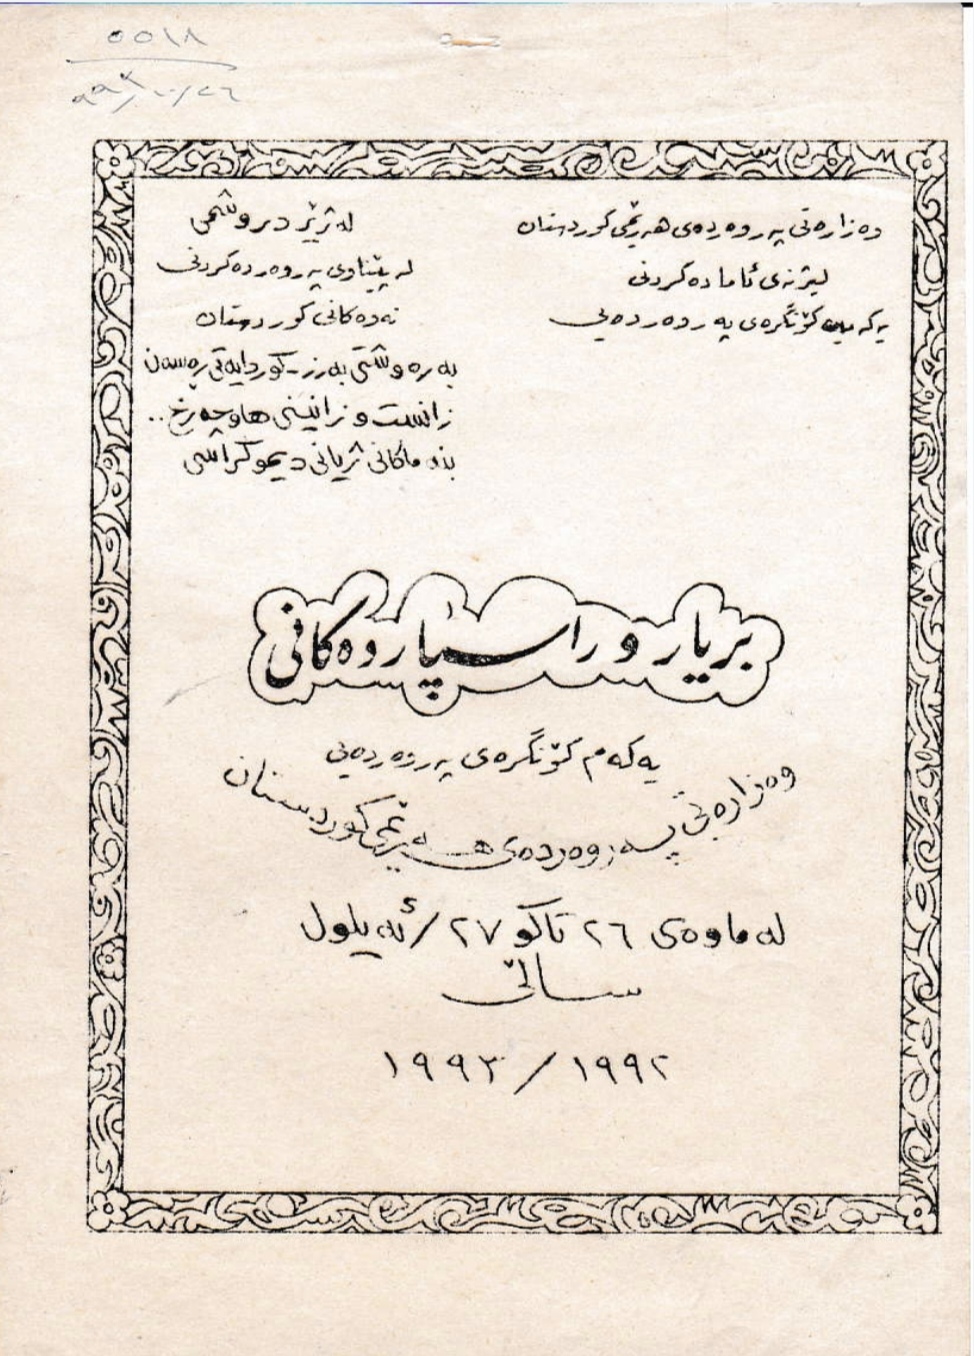 ٥٥١٨
وەزارەتی پەروەردەی هەرێمی کوردستان
لیژنەی ئامادەکردنی
یەکەمین کۆنگرەی پەروەردەیی
لەژێر دروشمی
لەپێناوی پەروەردەکردنی
نەوەکانی کوردستان
بەرەوشتی بەرز - کوردایەتی ڕەسەن
زانست و زانینی هاوچەرخ..
بنەماکانی ژیانی دیموکراسی
بریار و راسپاردەکانی
یەکەم کۆنگرەی پەروەردەیی
وەزارەتی پەروەردەی هەرێمی کوردستان
لەماوەی ٢٦ تاکو ٢٧/ئەیلول
ساڵی
١٩٩٢/١٩٩٣